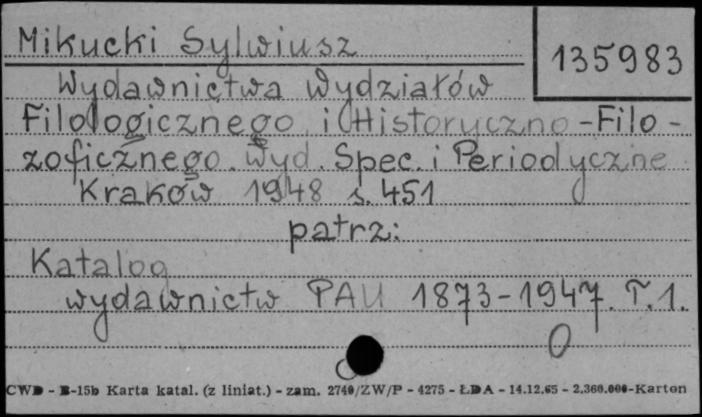 Mikucki Sylwiusz
135983
Wydawnictwa Wydziałów
Filologicznego i Historyczno-Filo-
zoficznego. Wyd. Spec. i Periodyczne
Kraków 1948 s. 451
patrz:
Katalog
wydawnictw PAU 1873-1947. T.1.
CWD - B-15b Karta katal. (z liniat.) - zam. 2740/ZW/P - 4275 - ŁDA - 14.12.65 - 2.360.000-Karton